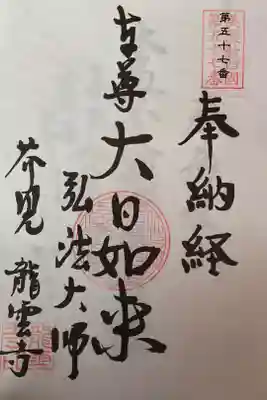 第五十七番
奉納経
本尊大日如来
弘法大師
芥見
龍雲寺